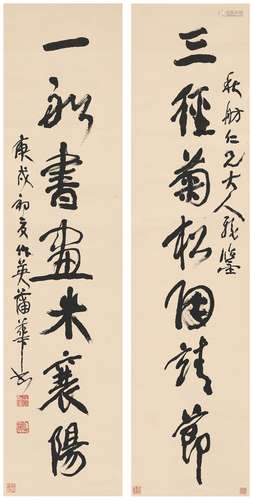 三徑菊松陶靖節
秋舫仁兄大人雅鑒
一船書畫米襄陽
庚戌初夏作英蒲華書